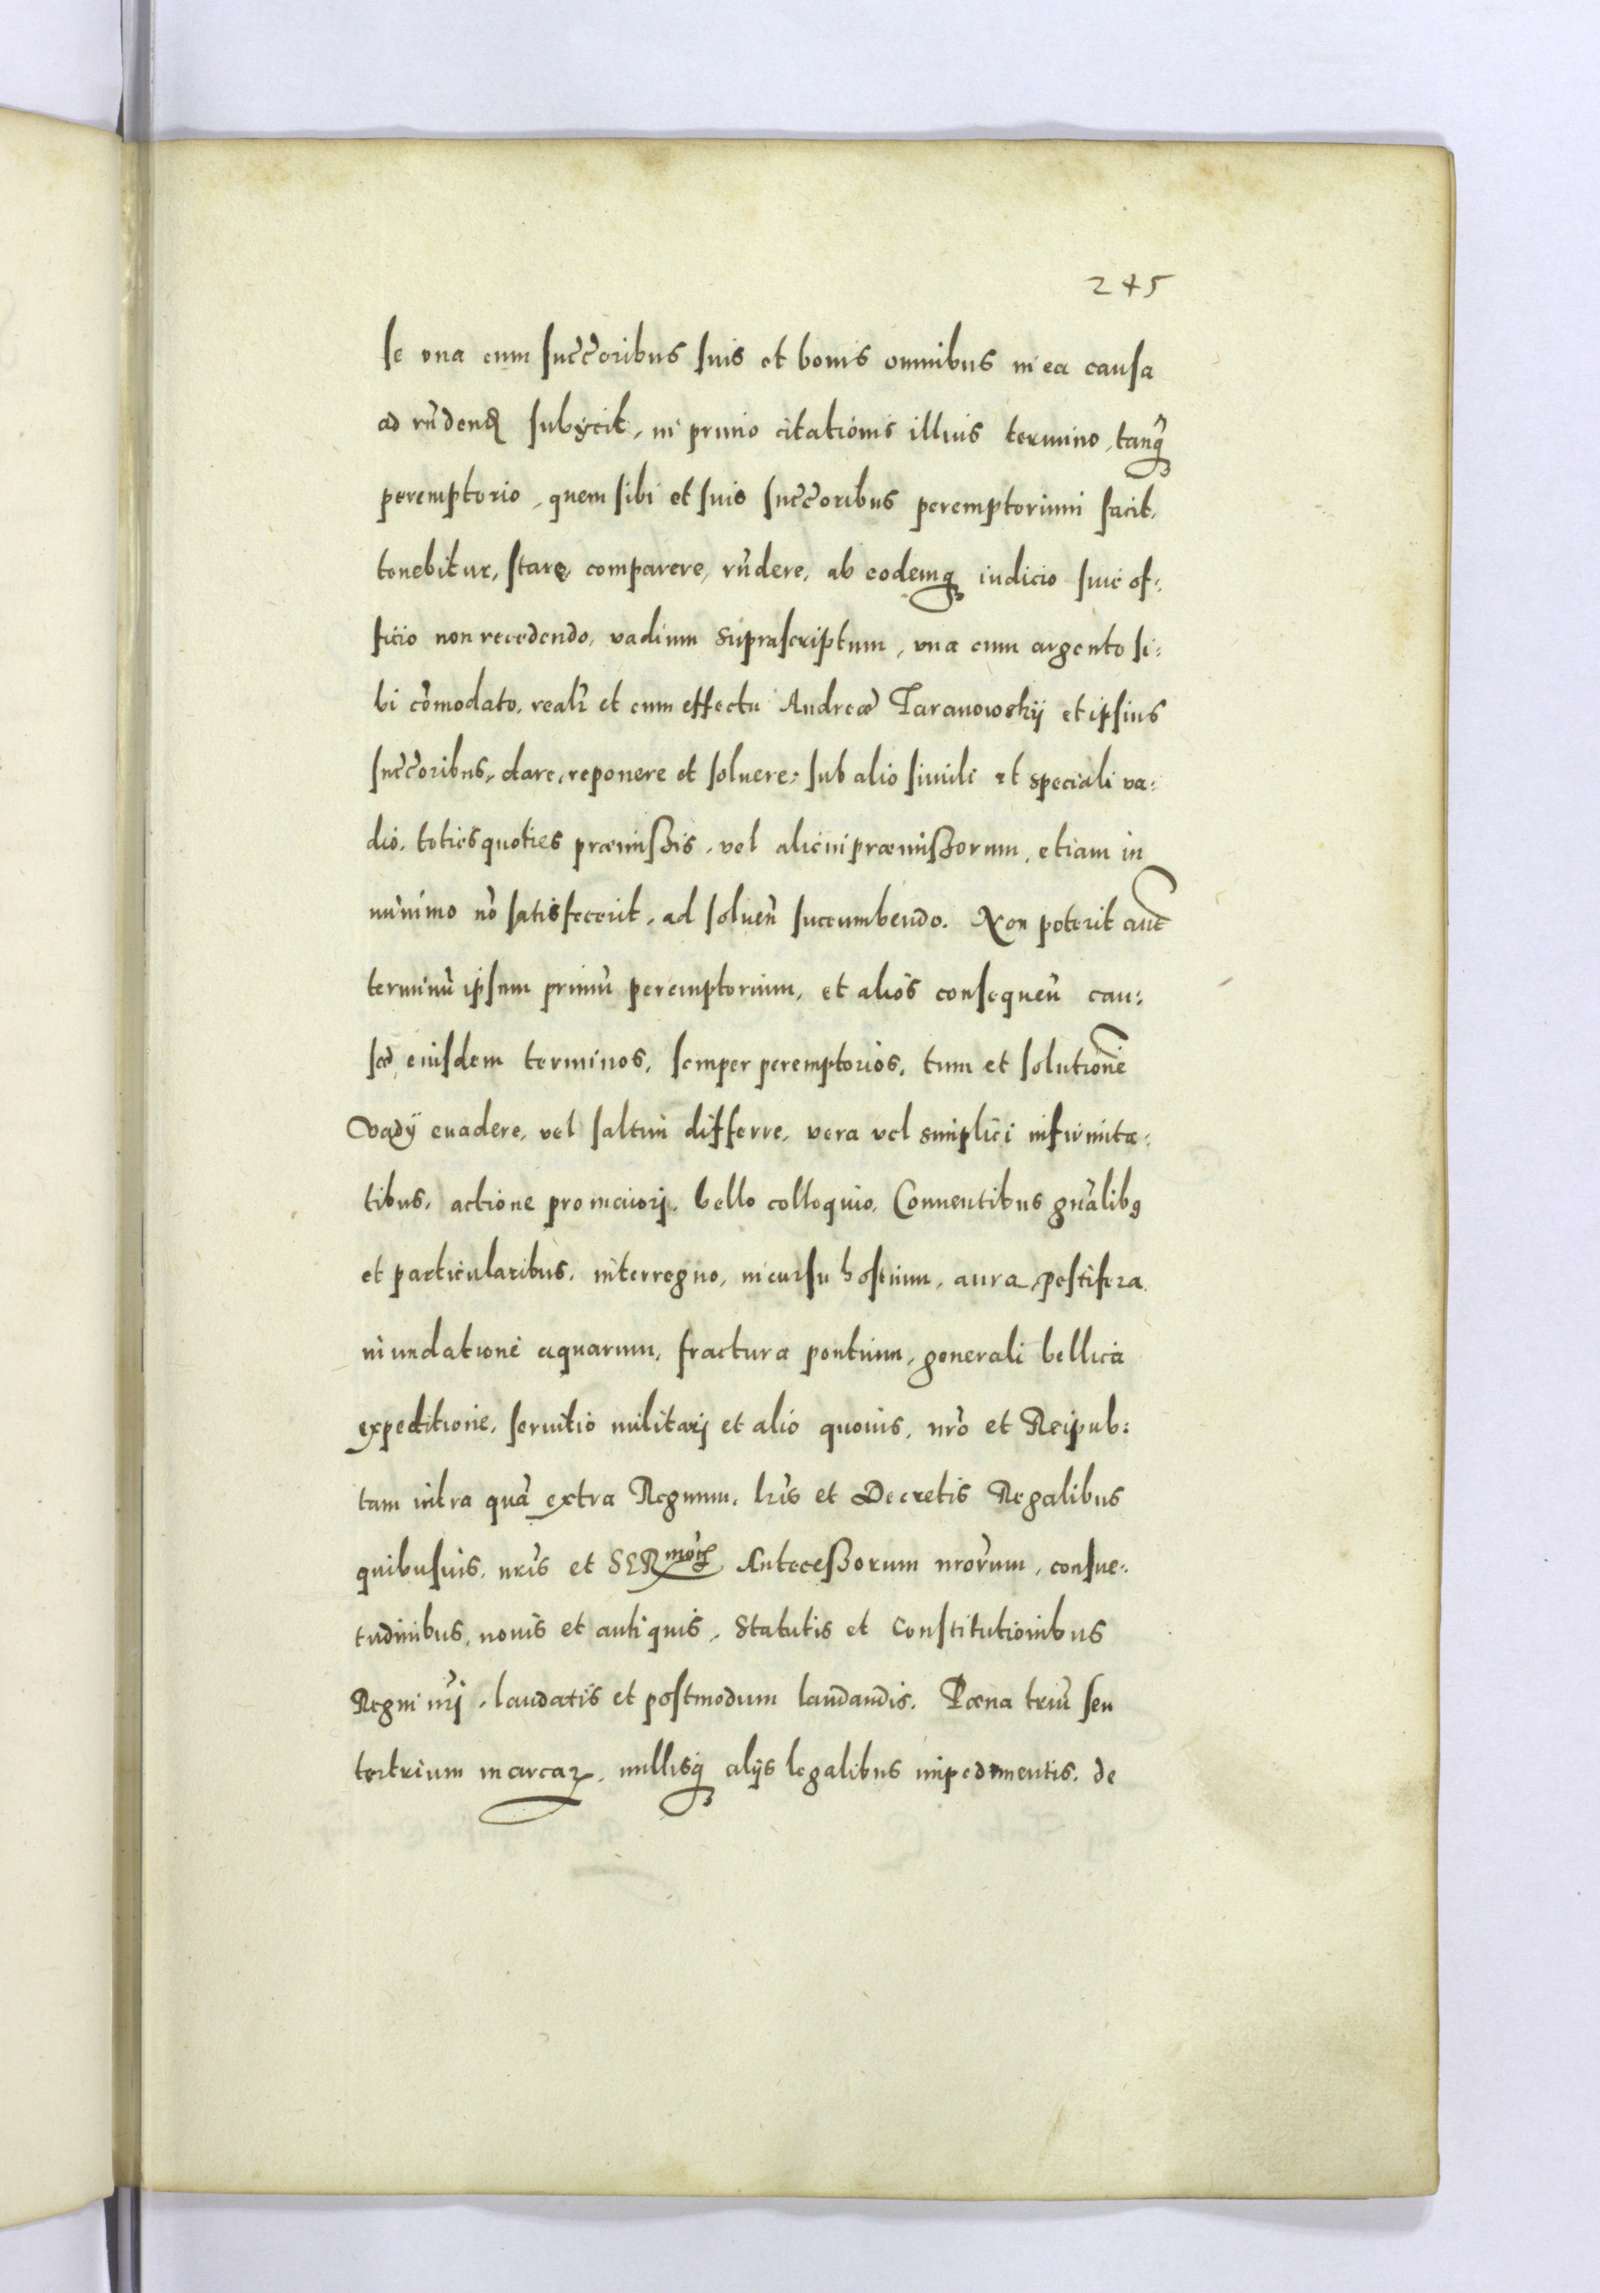 245
se vna cum succ̃oribus suis et bonis omnibus in ea causa
ad rñdend subijcit, in primo citationis illius termino, tanq̃
peremptorio, quem sibi et suis succ̃oribus peremptorium facit,
tenebitur, stare, comparere, rñdere, ab eodemq iudicio siuè of:
ficio non recedendo, vadium suprascriptum, vna cum argento si:
bi com̃odato, realr̃ et cum effectu Andreæ Taranowskij et ipsius
succ̃oribus, dare, reponere et soluere, sub alio simili et speciali va:
dio, toties quoties præmissis, vel alicui præmissorum, etiam in
minimo nõ satisfecerit, ad soluen̄ succumbendo. Non poterit aut̃
terminũ ipsum primũ peremptorium, et alios consequen̄ cau:
sæ eiusdem terminos, semper peremptorios, tum et solutionẽ
Vadij euadere, vel saltim differre, vera vel simplici infirmita:
tibus, actione pro maiori, bello colloquio, Conuentibus gñalibꝯ
et particularibus, interregno, incursu hostium, aura pestifera
inundatione aquarum, fractura pontium, generali bellica
expeditione, seruitio militarj et alio quouis, nrõ et Reipub:
tam intra quã extra Regnum, lrĩs et Decretis Regalibus
quibusuis, nrĩs et SERmorũ Antecessorum nrõrum, consue:
tudinibus, nouis et antiquis, Statutis et Constitutionibus
Regni nrĩ, laudatis et postmodum laudandis. Pæna triũ seu
ter trium marcaꝝ, nullisq̃ alijs legalibus impedimentis, de